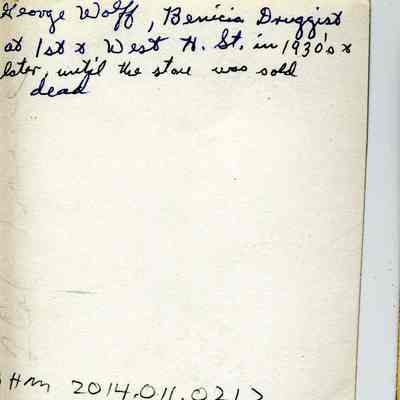 George Wolff, Benicia Druggist
at 1st & West H. St. in 1930's &
later, until the store was sold
dead
HM 2014.011.0217